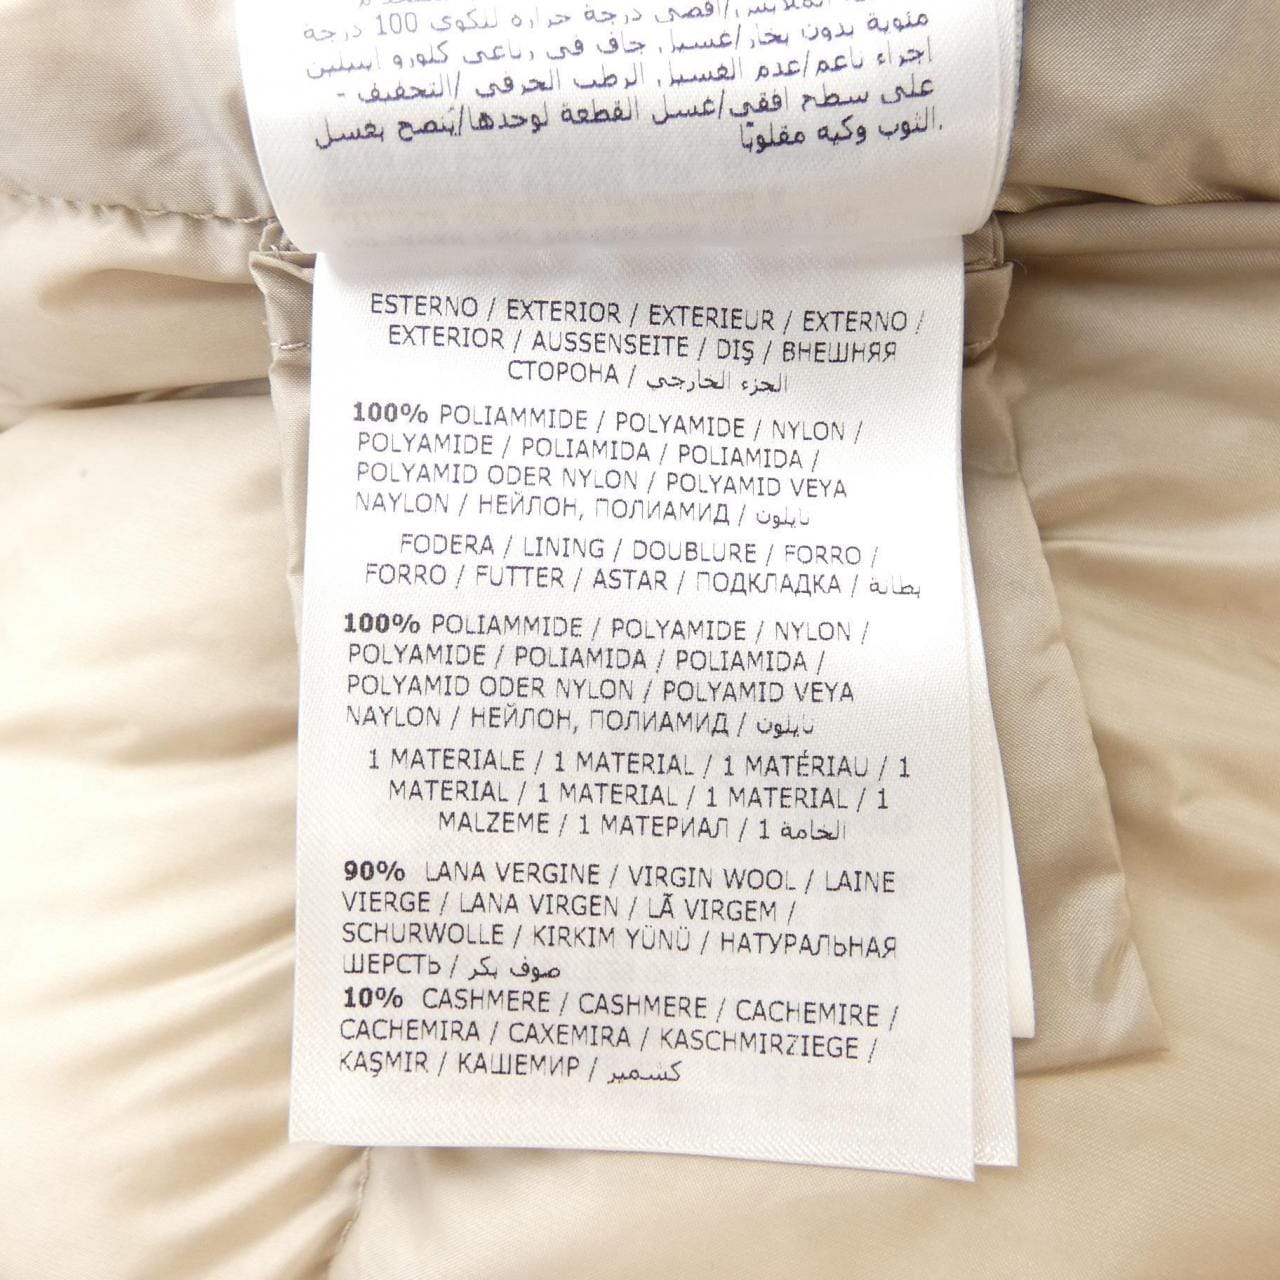 الملابس/أقصى درجة حرارة للكوى 100 درجة
مئوية بدون بخار/غسيل جاف في رباعي كلورو إيثيلين
إجراء ناعم/عدم الغسيل الرطب الحرفي /التجفيف -
على سطح افقي/غسل القطعة لوحدها/يُنصح بغسل
الثوب وكيه مقلوبًا.
ESTERNO / EXTERIOR / EXTERIEUR / EXTERNO /
EXTERIOR / AUSSENSEITE / DIŞ / ВНЕШНЯЯ
СТОРОНА / الجزء الخارجي
100% POLIAMMIDE / POLYAMIDE / NYLON /
POLYAMIDE / POLIAMIDA / POLIAMIDA /
POLYAMID ODER NYLON / POLYAMID VEYA
NAYLON / НЕЙЛОН, ПОЛИАМИД / نايلون
FODERA / LINING / DOUBLURE / FORRO /
FORRO / FUTTER / ASTAR / ПОДКЛАДКА / بطانة
100% POLIAMMIDE / POLYAMIDE / NYLON /
POLYAMIDE / POLIAMIDA / POLIAMIDA /
POLYAMID ODER NYLON / POLYAMID VEYA
NAYLON / НЕЙЛОН, ПОЛИАМИД / نايلون
1 MATERIALE / 1 MATERIAL / 1 MATÉRIAU / 1
MATERIAL / 1 MATERIAL / 1 MATERIAL / 1
MALZEME / 1 МАТЕРИАЛ / 1 الخامة
90% LANA VERGINE / VIRGIN WOOL / LAINE
VIERGE / LANA VIRGEN / LÃ VIRGEM /
SCHURWOLLE / KIRKIM YÜNÜ / НАТУРАЛЬНАЯ
ШЕРСТЬ / صوف بكر
10% CASHMERE / CASHMERE / CACHEMIRE /
CACHEMIRA / CAXEMIRA / KASCHMIRZIEGE /
KAŞMIR / КАШЕМИР / كشمير